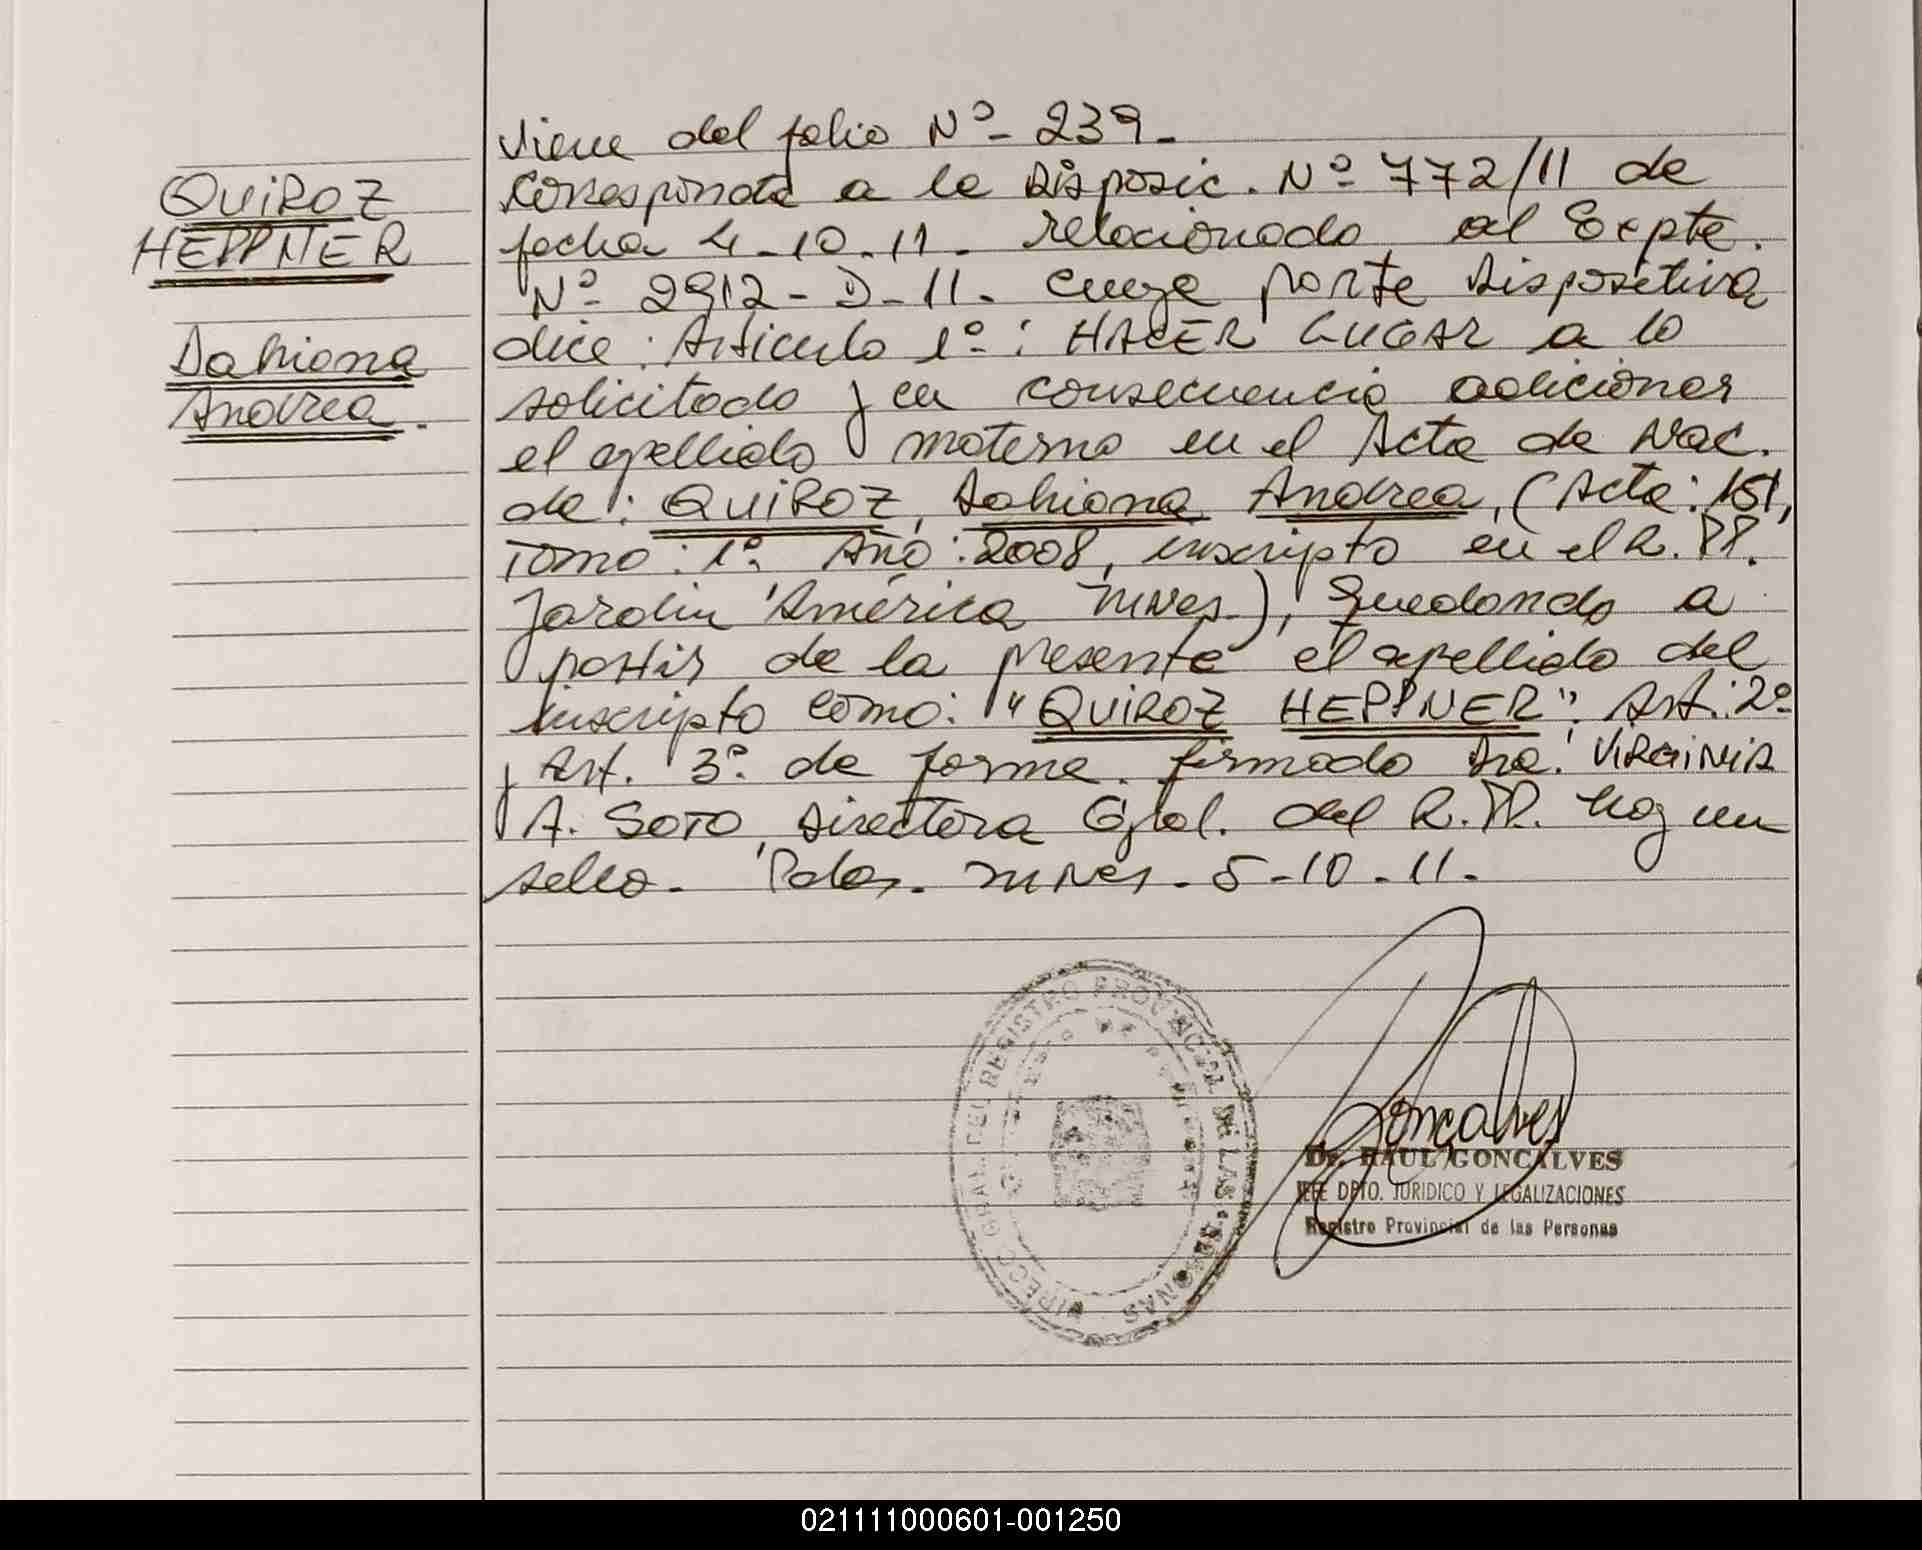 QUIROZ
HEPPNER
Dahiana
Andrea.
viene del folio Nº- 239.-
Corresponde a la Disposic. Nº 772/11 de
fecha 4-10-11. relacionado al Expte.
Nº 2912-D-11. cuya parte dispositiva
dice: Artículo 1º: HACER LUGAR a lo
solicitado y en consecuencia adicionar
el apellido materno en el Acta de Nac.
de: QUIROZ, Dahiana Andrea, (Acta: 151,
Tomo: 1º Año: 2008, inscripto en el R.PP.
Jardín América Mnes.), Quedando a
partir de la presente el apellido del
inscripto como: "QUIROZ HEPPNER". Art: 2º
y Art. 3º de forma. firmado Dra. VIRGINIA
A. SOTO, Directora Gral. del R.PP. hay un
sello. Pdas. Mnes. 5-10-11.
DIRECC. GRAL. DEL REGISTRO PROVINCIAL DE LAS PERSONAS
Goncalves
Dr. RAUL GONCALVES
JEFE DPTO. JURIDICO Y LEGALIZACIONES
Registro Provincial de las Personas
021111000601-001250